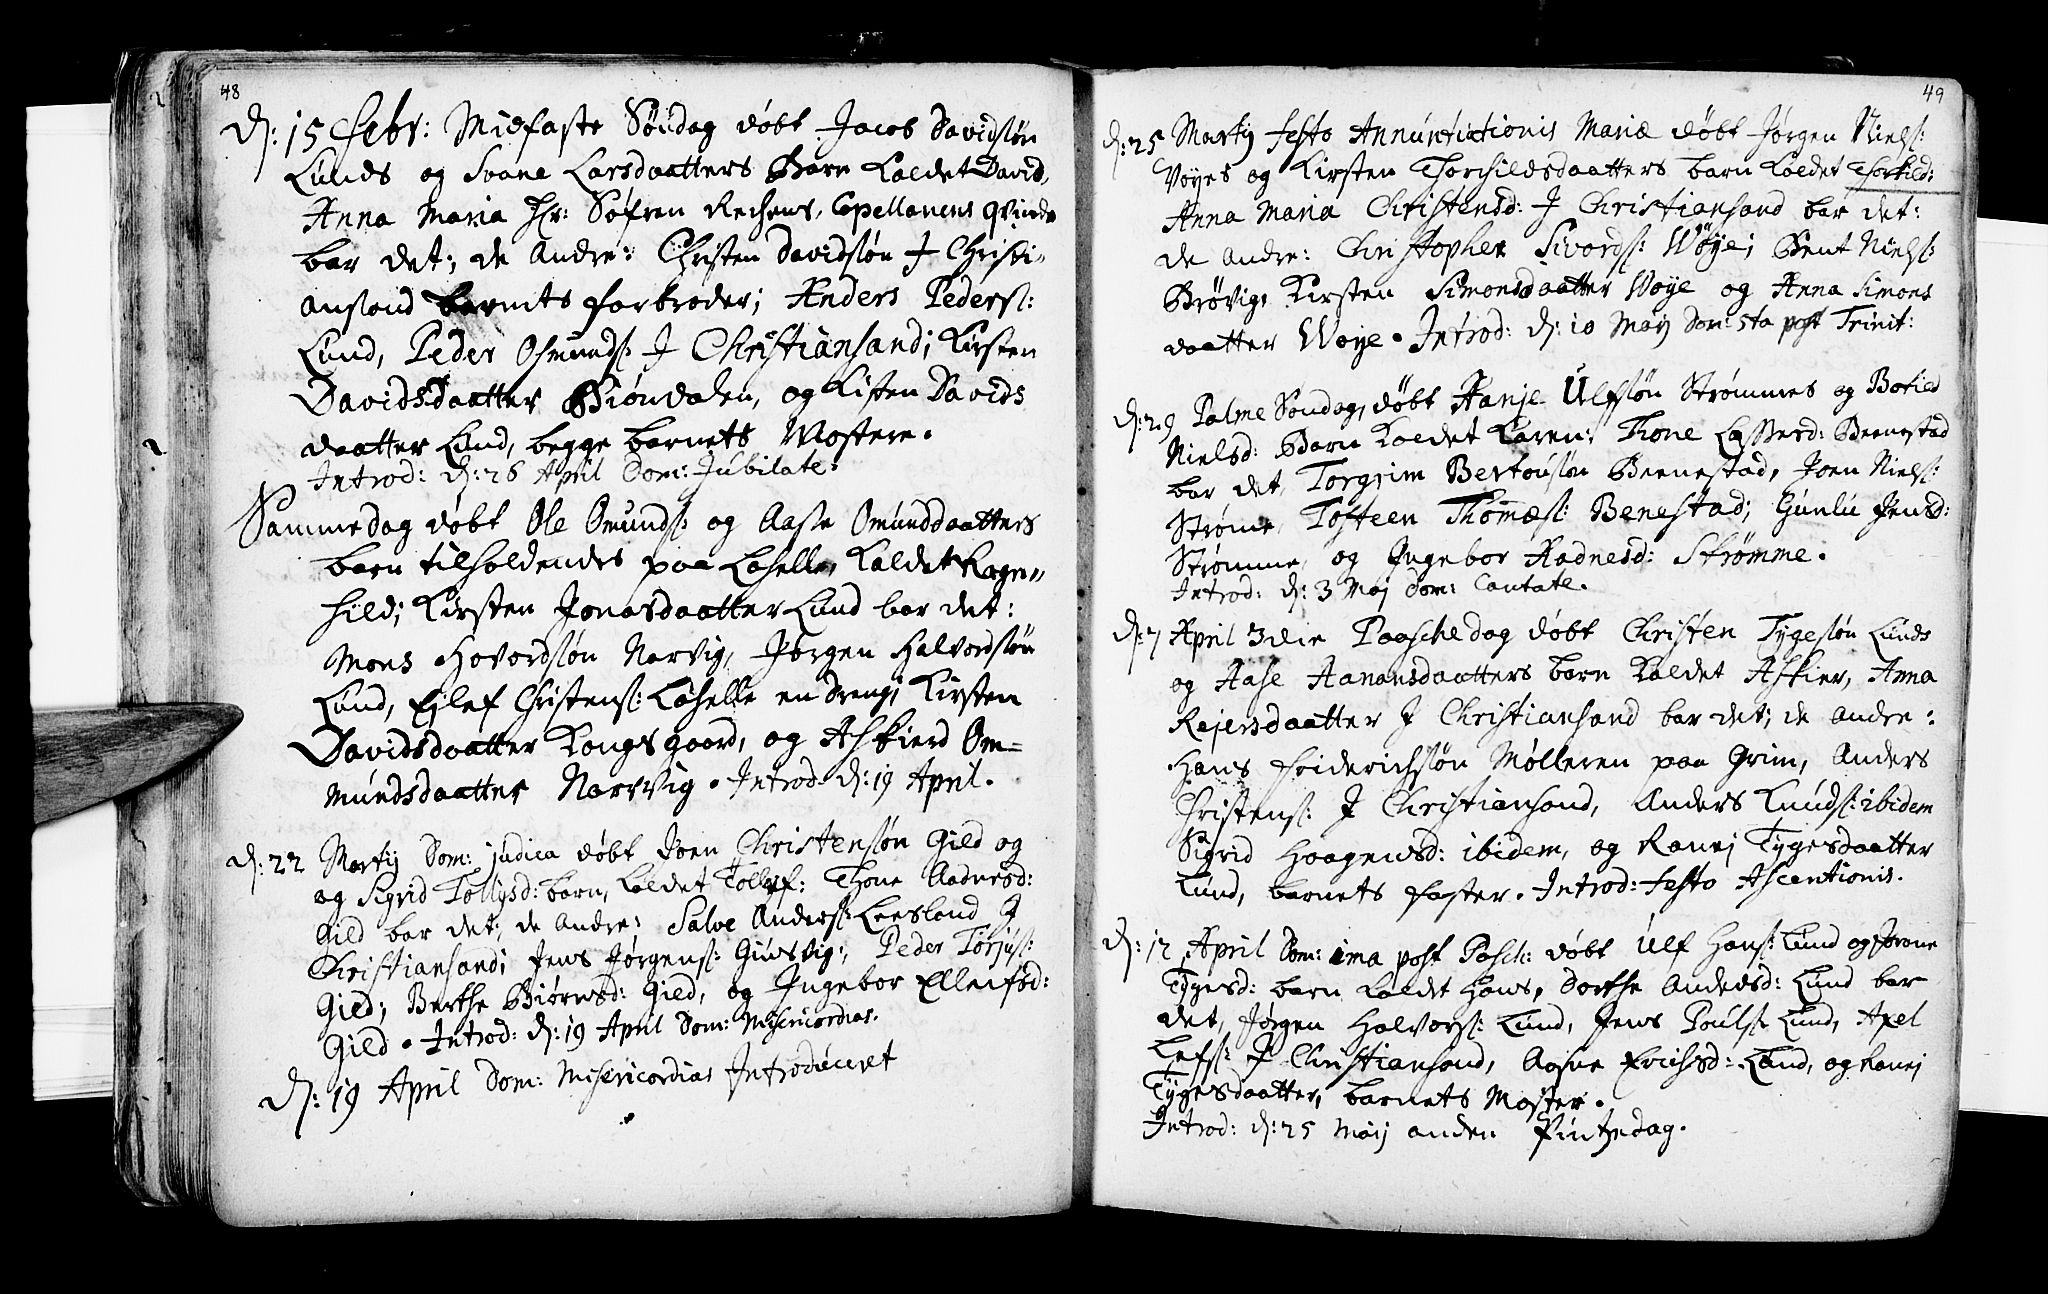 48
D: 15 Febr: Midfaste Søndag døbt Jacob Davidsøn
Lunds og Svane Larsdaatters Barn kaldet David,
Anna Maria Hr: Søfren Capellanens qvinde
bar det; de Andre: Christen Davidsøn J Christi-
ansand barnets farbroder; Anders Peders:
Lund, Peder Osmunds: J Christiansand; Kirsten
Davidsdaatter Giøndalen, og Kisten Davids
daatter Lund, begge barnets Mostere.
Introd: d: 26 April Dom: Jubilate:
Samme dag døbt Ole Omunds: og Aase Omunddaatters
barn tilholdendes paa Lahelle, kaldet Ragn-
hild; Kirsten Jonasdaatter Lund bar det:
Mons Hovordsøn Narvig, Jørgen Halvordsøn
Lund, Ejlef Christens: Lahelle en dreng; Kirsten
Davidsdaatter Kongsgaard, og Askierd Om=
mundsdaatter Narvig. Introd d: 19 April.
d: 22 Martij Dom: judica døbt Joen Christensøn Gild og
og Sigrid Tollysd: barn, kaldet Tollef: Thone Aadnesd:
Gild bar det; de andre: Salve Anders: Leesland J
Christiansand; Jens Jørgens: Ginsvig; Peder Torjus:
Gild; Berthe Biørnsd: Gild, og Ingebor Ellenfsd:
Gild. Introd: d: 19 April Dom: Misericordias.
D: 19 April Dom: Misericordias Introduceret
49
d: 25 Martij Festo Annuntiationis Mariæ døbt Jørgen Niels:
Vøyes og Kirsten Thorchildsdaatters barn kaldet Thorkild:
Anna Maria Christensd: J Christiansand bar det:
de andre: Christopher Sivords: Wøye; Bent Niels:
Brøvig, Kirsten Simonsdaatter Woye og Anna Simons
daatter Woye. Introd: d: 10 Maij Dom: 5ta post Trinit:
d: 29 Palme Søndag, døbt Hanje Ulfsøn Strømmes og Botild
Nielsd: Barn kaldet Karen: Thone Lasserd: Beenestad
bar det, Torgrim Bertousøn Beenestad, Joen Niels:
Strøme, Tosteen Thomæs: Benestad; Gunlu Jensd:
Strømme, og Ingebor Hadnesd: Strømme.
Introd: d: 3 Maj Dom: Cantate.
d: 7 April 3die Paaschedag døbt Christen Tygesøn Lunds
og Aase Aanansdaatters barn kaldet Askier, Anna
Rejersdaatter J Christiansand bar det; de andre:
Hans Friderichsøn Mølleren paa Grim, Anders
Christens: J Christiansand, Anders Knuds: ibidem
Sigrid Haagensd: ibidem, og Ranej Tygesdaatter
Lund, barnets faster. Introd: Festo Ascentionis.
d: 12 April Dom: 1ma post Pasch: døbt Ulf Hans: Lund og Jorone
Tygesd: barn kaldet Hans, Dorthe Andedsd: Lund bar
det, Jørgen Halvors: Lund, Jens Pouls: Lund, Axel
Lefs: J Christiansand, Aasne Erichsd: Lund, og Ranej
Tygesdaatter, barnets Moster.
Introd: d: 25 Maij anden Pintzedag.